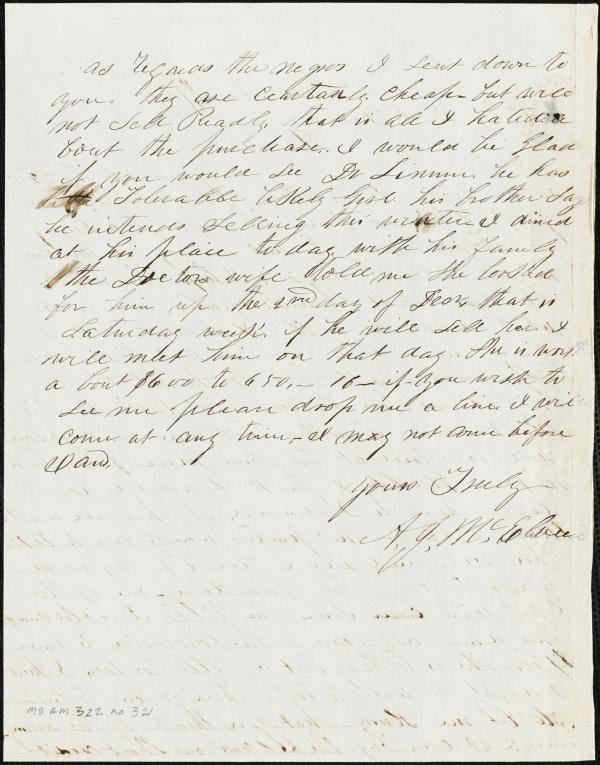 as regards the negros I sent down to
you. they are ceartanly cheap - but will
not Sell Readly that is all I hative a
bout the purchase. I would be Glad
if you would see Dr he has
Tolerabbe likely Girl his brother Say
he intends Selling this winter I dined
at his place to day with his family
& the Doctors wife told me she looked
for him up the 2nd day of Decr that is
Saturday week. if he will sell her I
will meet him on that day She is worth
a bout $600 to 650,- 16 - if you wish to
see me please drop me a line. I will
come at any time,- I may not come before

yours Truly
A. J. McElveen
MS AM 322 no 321